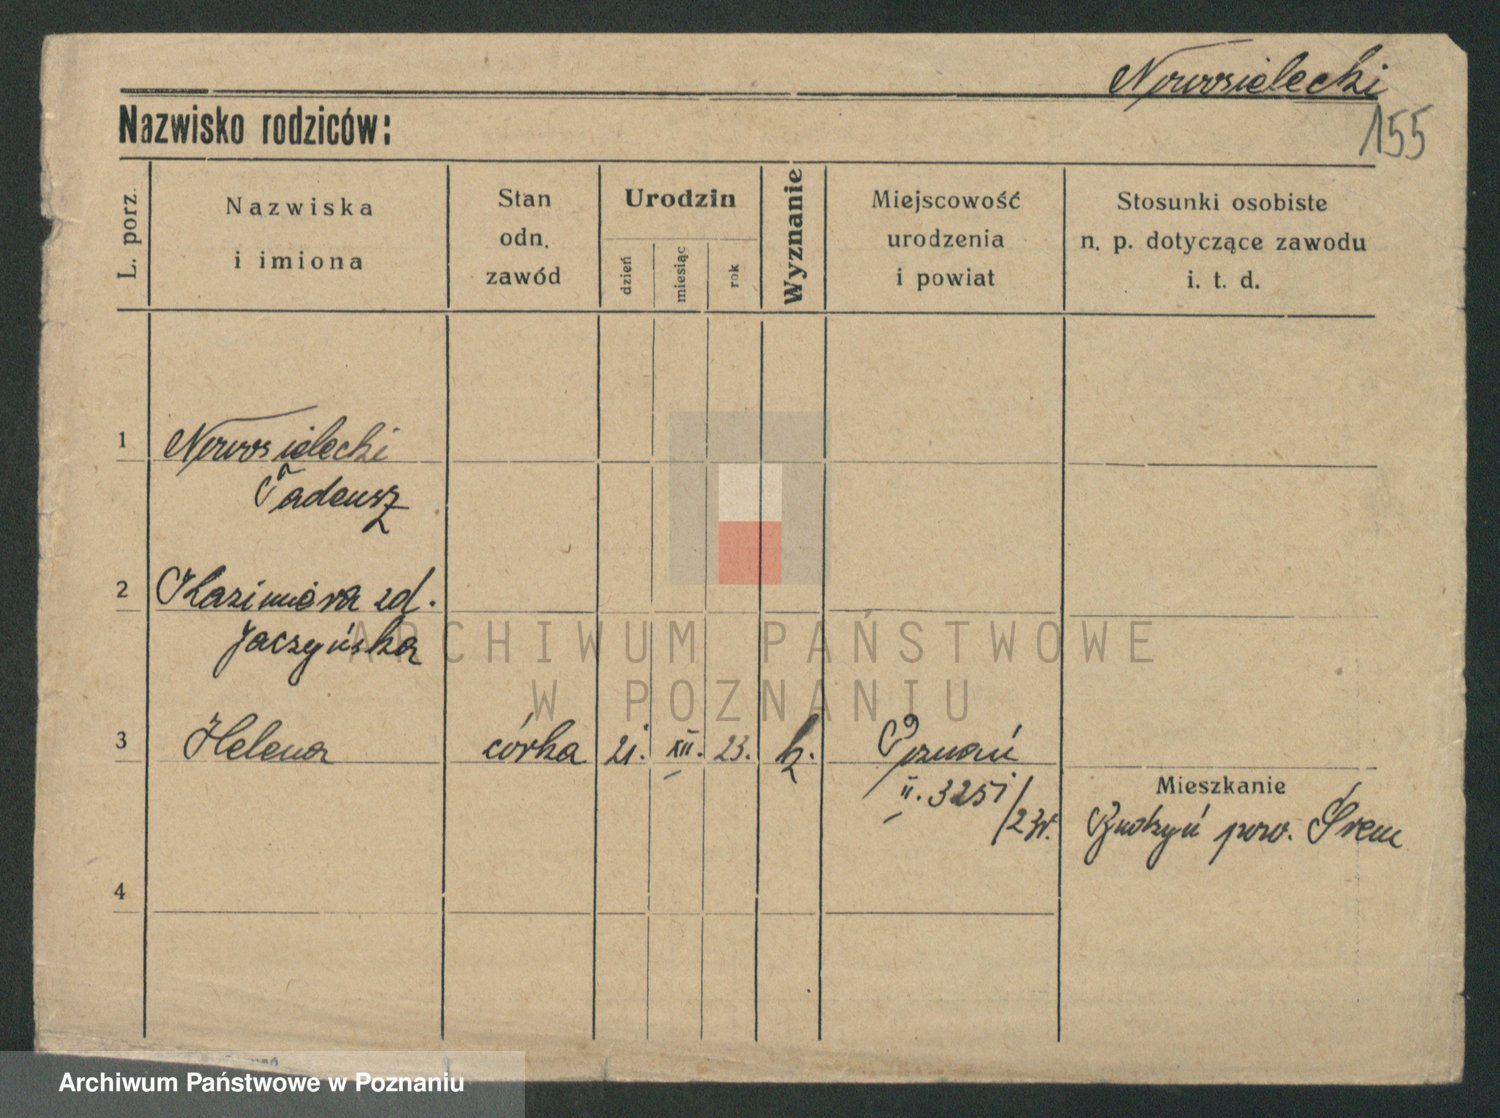 Nowosielecki
155
Nazwisko rodziców:
L. porz.
Nazwiska
i imiona
Stan
odn.
zawód
Urodzin
dzień
miesiąc
rok
Wyznanie
Miejscowość
urodzenia
i powiat
Stosunki osobiste
n. p. dotyczące zawodu
i. t. d.
1 Nowosielecki
Tadeusz
2 Kazimiera zd.
Jaczyńska
ARCHIWUM PAŃSTWOWE
W POZNANIU
3 Helena córka 21. XII. 23. k. Poznań
II. 3251/23r.
Mieszkanie
pow. Śrem
4
Archiwum Państwowe w Poznaniu